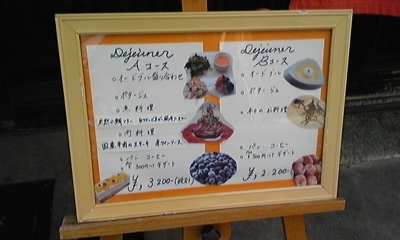 Dejeuner
Aコース
○オードブル盛り合わせ
○ポタージュ
○魚料理
○肉料理
○パン・コーヒー
○¥500円〜1デザート
¥3,200-(税込)
Dejeuner
Bコース
○オードブル
○ポタージュ
○本日のお料理
○パン・コーヒー
○¥500円〜1デザート
¥2,200-